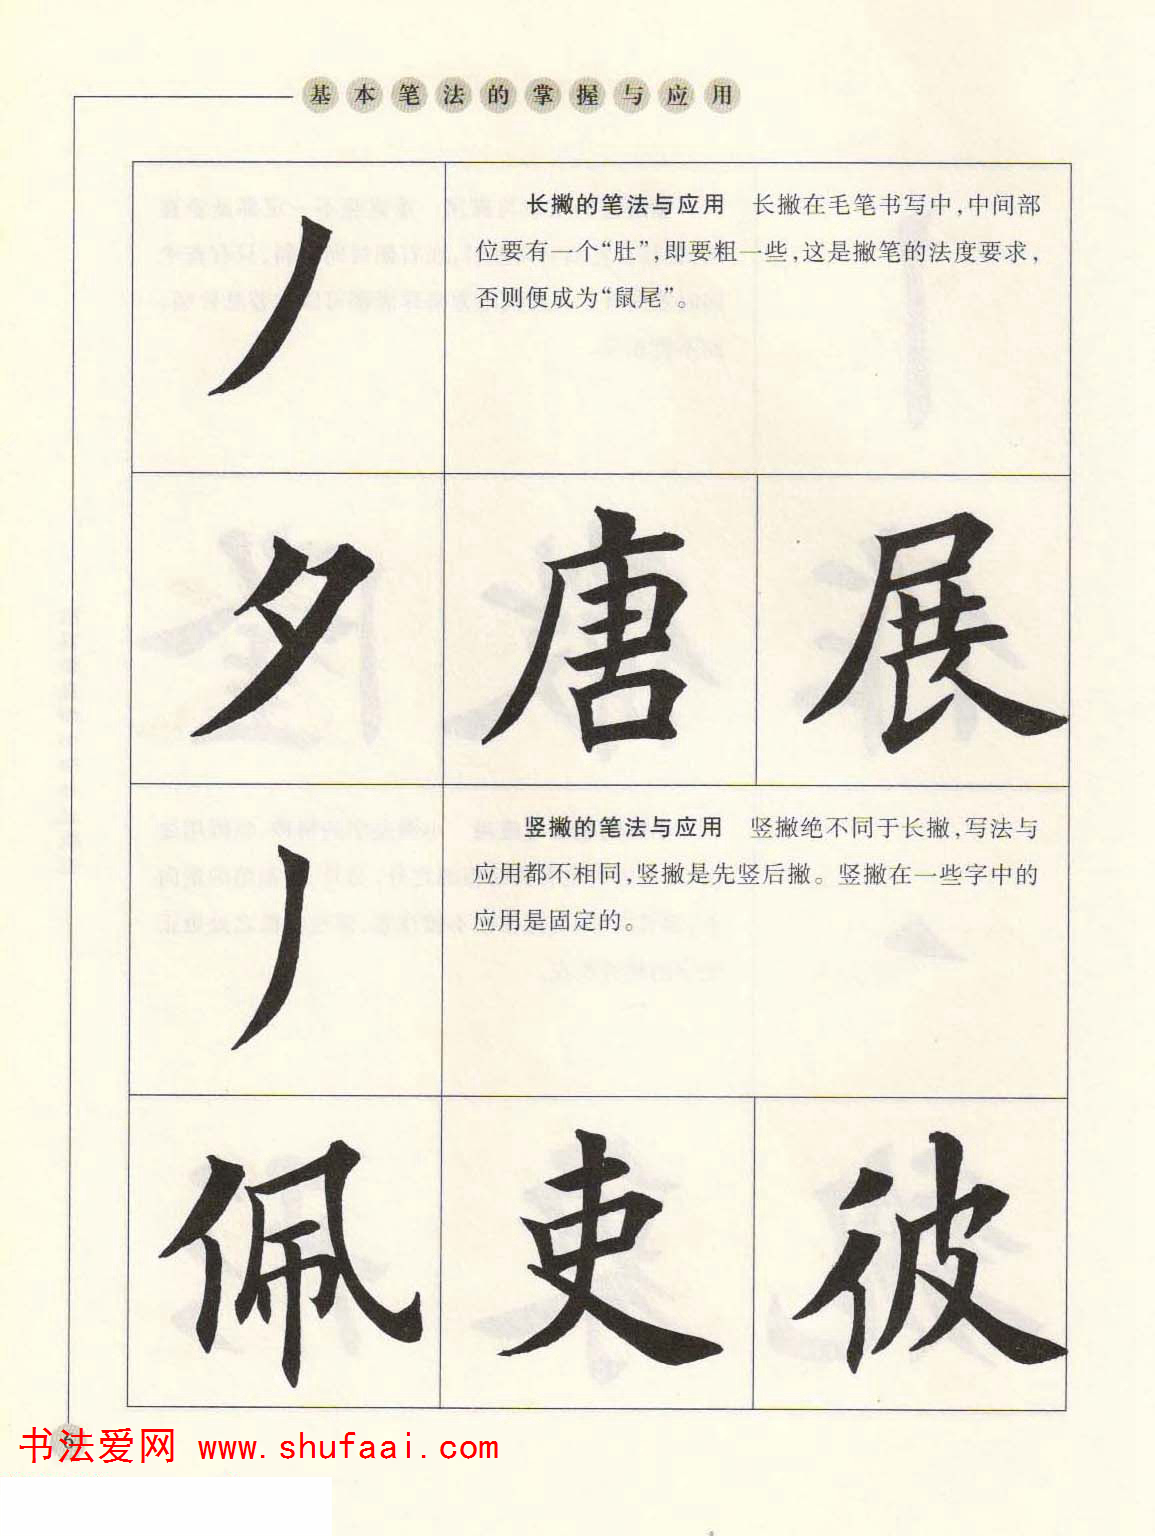 基本笔法的掌握与应用
长撇的笔法与应用　长撇在毛笔书写中，中间部
位要有一个“肚”，即要粗一些，这是撇笔的法度要求，
否则便成为“鼠尾”。
夕 唐 展
竖撇的笔法与应用　竖撇绝不同于长撇，写法与
应用都不相同，竖撇是先竖后撇。竖撇在一些字中的
应用是固定的。
佩 吏 彼
6
书法爱网 www.shufaai.com